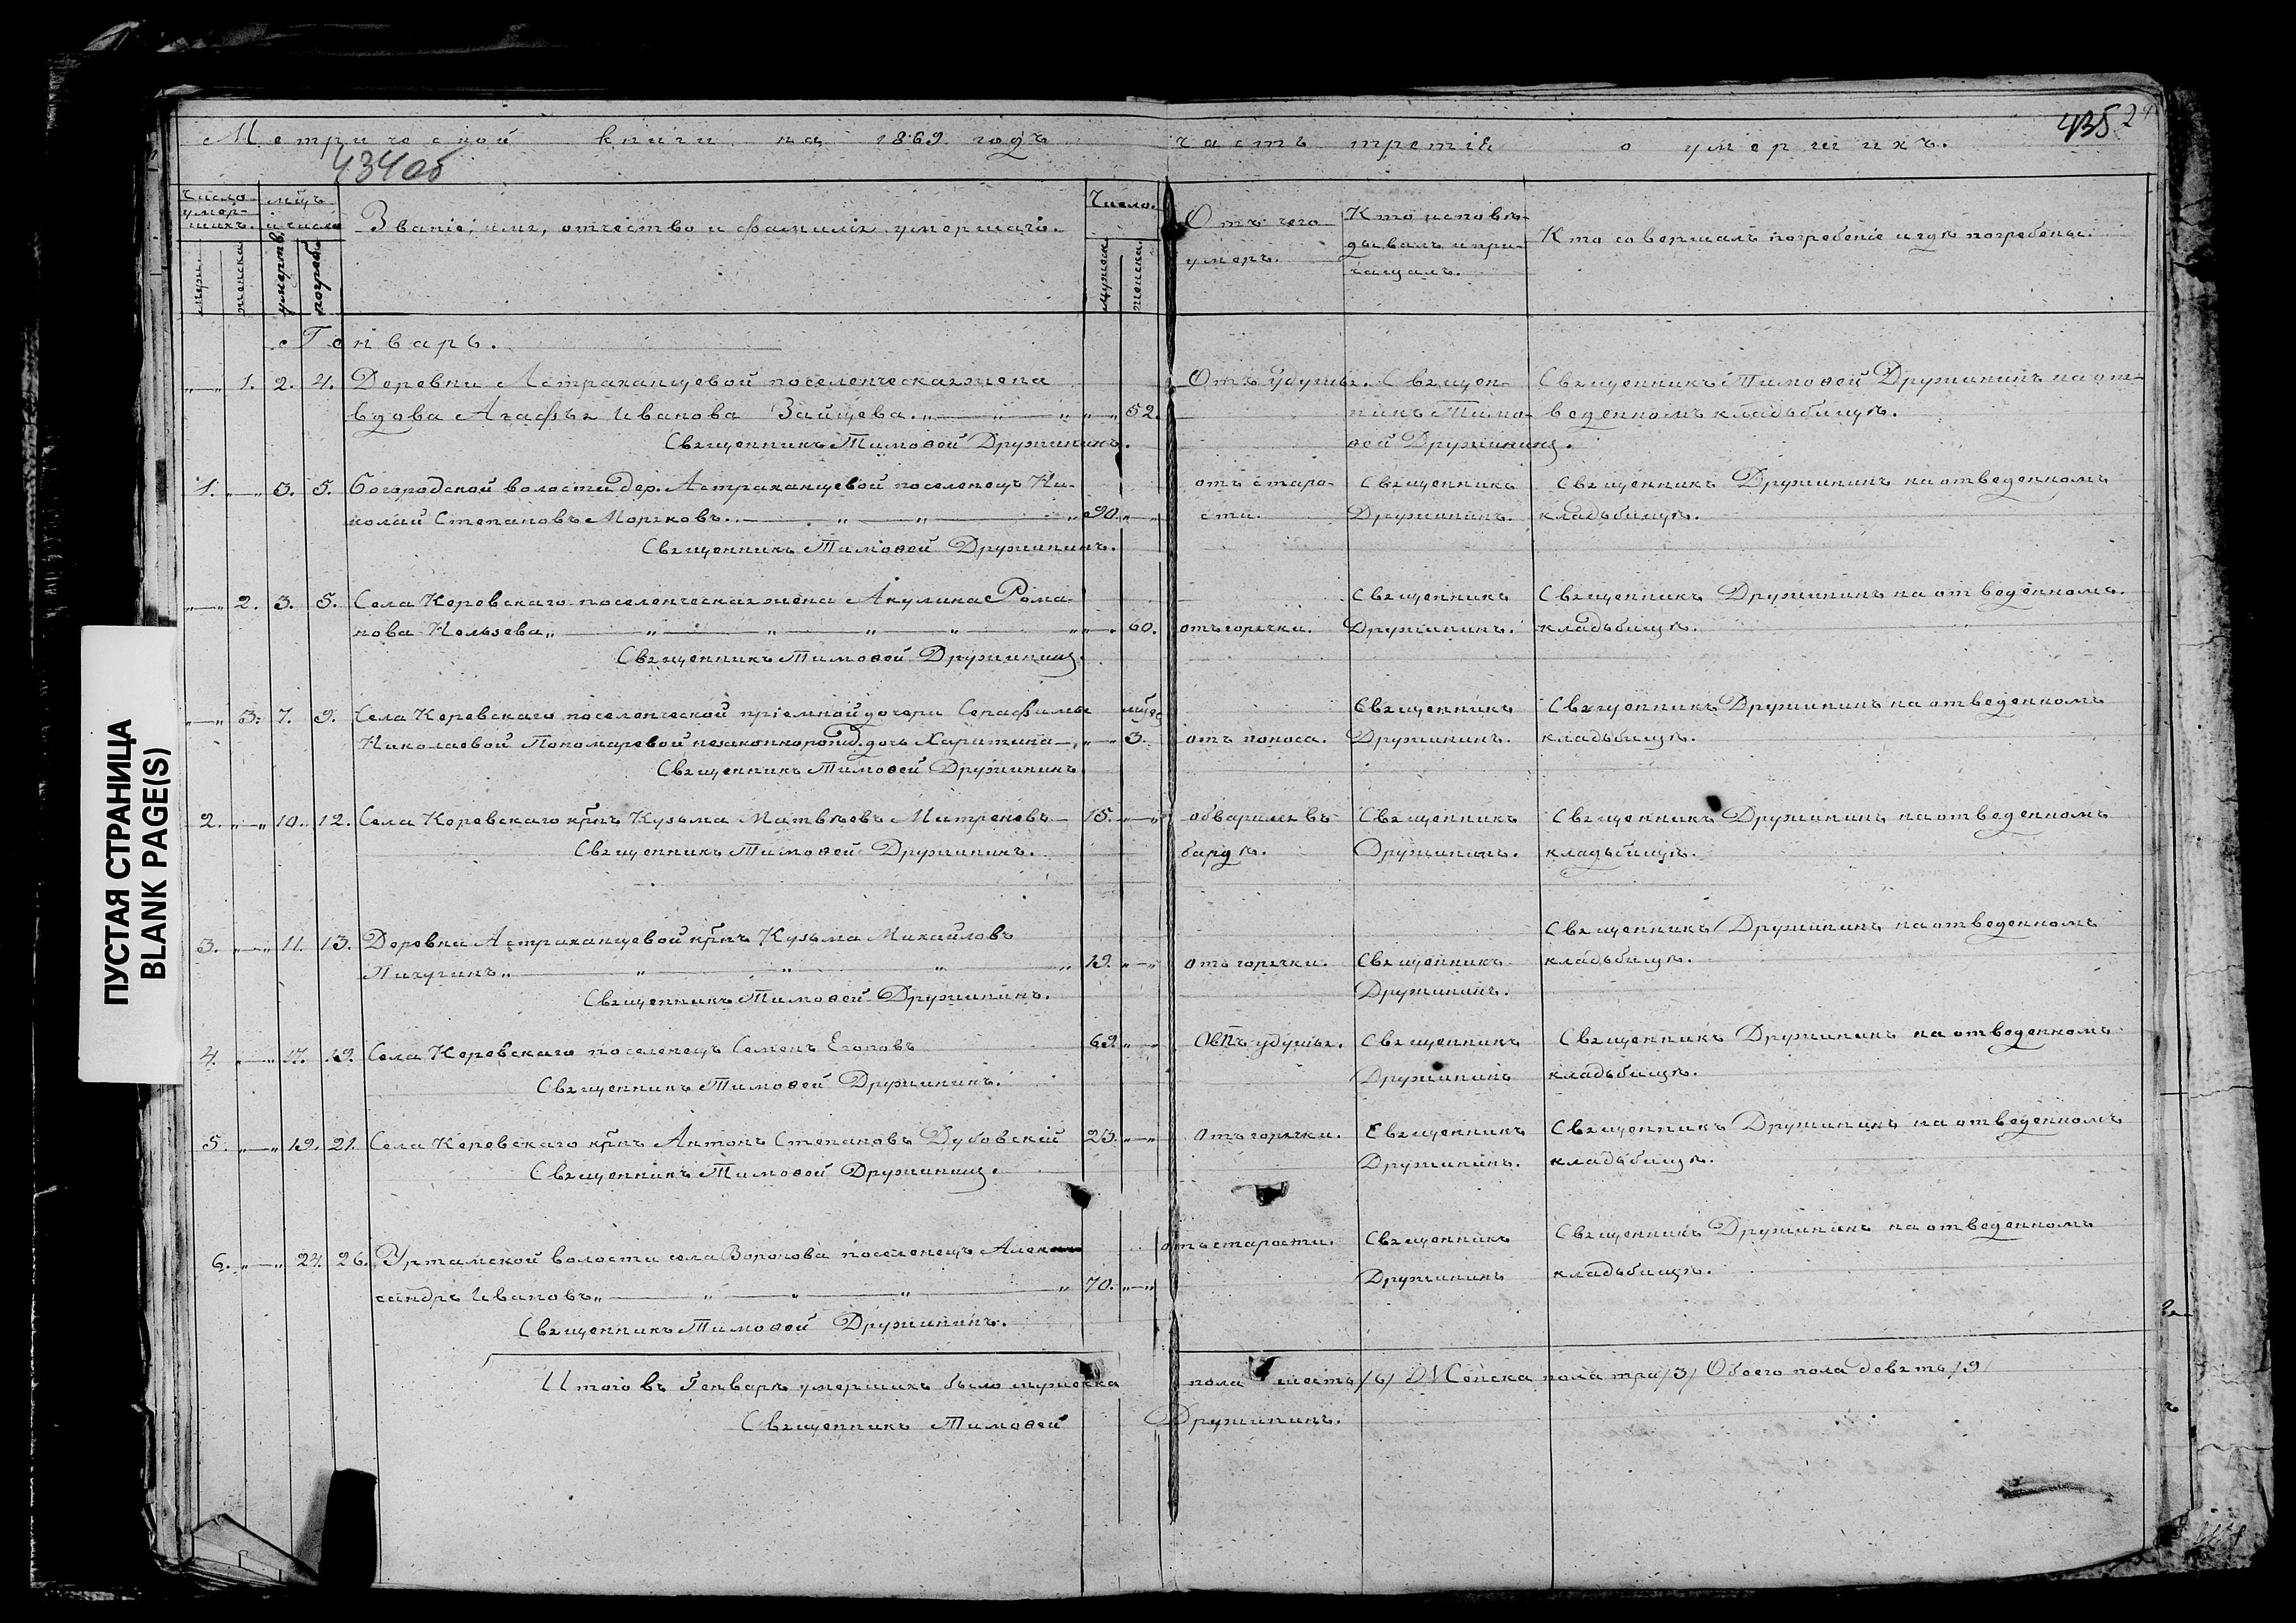 Метрической книги на 1869 годъ часть третія о умершихъ.
434об
435
29
Число умер-шихъ.
мѣцъ и число
Званіе, имя, отчество и фамилія умершаго.
Число.
Отъ чего умеръ.
Кто исповѣ-дывалъ и при-чащалъ.
Кто совершалъ погребеніе и гдѣ погребены.
муж.
женска
умертв.
погреб.
мужеск
женска
Генварь.
„—„ 1. 2. 4. Деревни Астраханцевой поселенческая жена Отъ удушья. Священ- Священникъ Тимоѳей Дружининъ на от-
вдова Агафья Иванова Зайцева. „—„—„ „—„ 52. никъ Тимо- веденномъ кладьбищѣ.
Священникъ Тимоѳей Дружининъ. ѳей Дружининъ.
1. „—„ 3. 5. Богородской волости дер. Астраханцевой поселенецъ Ни- отъ старо- Священникъ Священникъ Дружининъ на отведенномъ
колай Степановъ Моряковъ. „—„—„ 90. „—„ сти. Дружининъ. кладьбищѣ.
Священникъ Тимоѳей Дружининъ.
„—„ 2. 3. 5. Села Керевскаго поселенческая жена Акулина Рома- Священникъ Священникъ Дружининъ на отведенномъ.
нова Кользева „—„—„—„—„ „—„ 60. отъ горячки. Дружининъ. кладьбищѣ.
Священникъ Тимоѳей Дружининъ.
„—„ 3. 7. 9. Села Керевскаго поселенческой пріемной дочери Серафимы мѣс Священникъ Священникъ Дружининъ на отведенномъ
Николаевой Пономаревой незаконнорожд. дочь Харитина —„ „—„ 3. отъ поноса. Дружининъ. кладьбищѣ.
Священникъ Тимоѳей Дружининъ.
2. „—„ 10. 12. Села Керевскаго крнъ Кузьма Матвѣевъ Митреновъ — 15. „—„ обварился въ Священникъ Священникъ Дружининъ на отведенномъ
Священникъ Тимоѳей Дружининъ. бардѣ. Дружининъ. кладьбищѣ.
3. „—„ 11. 13. Деревни Астраханцевой крнъ Кузьма Михайловъ Священникъ Дружининъ на отведенномъ
Пичугинъ „—„—„—„—„ 19. „—„ отъ горячки. Священникъ кладьбищѣ.
Священникъ Тимоѳей Дружининъ. Дружининъ.
4. „—„ 17. 19. Села Керевскаго поселенецъ Семенъ Егоровъ 69. „—„ Отъ удушья. Священникъ Священникъ Дружининъ на отведенномъ
Священникъ Тимоѳей Дружининъ. Дружининъ кладьбищѣ.
5. „—„ 19. 21. Села Керевскаго крнъ Антонъ Степановъ Дубовскій 23. „—„ Отъ горячки. Священникъ Священникъ Дружининъ на отведенномъ
Священникъ Тимоѳей Дружининъ. Дружининъ. кладьбищѣ.
6. „—„ 24. 26. Уртамской волости села Воронова поселенецъ Алек- отъ старости. Священникъ Священникъ Дружининъ на отведенномъ
сандръ Ивановъ „—„—„—„—„ 70. „—„ Дружининъ кладьбищѣ.
Священникъ Тимоѳей Дружининъ.
Итого въ Генварѣ умершихъ было мужеска пола шесть /6/ Женска пола три /3/ Обоего пола девять /9/
Священникъ Тимоѳей Дружининъ.
ПУСТАЯ СТРАНИЦА
BLANK PAGE(S)